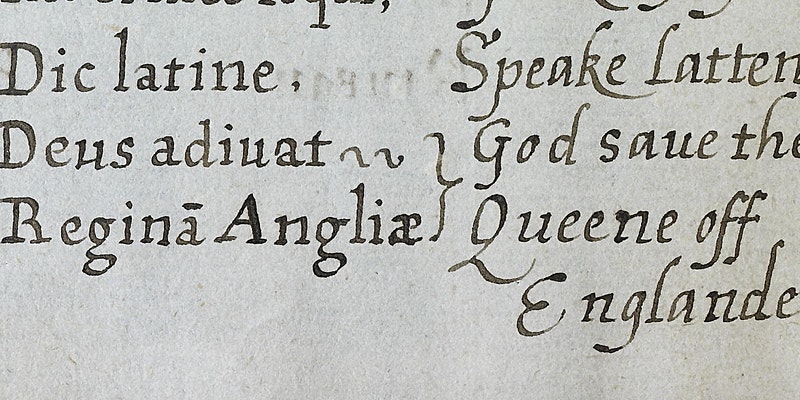 Dic latine. Speake Latten
Deus adiuat } God saue the
Reginā Angliæ Queene off
Englande